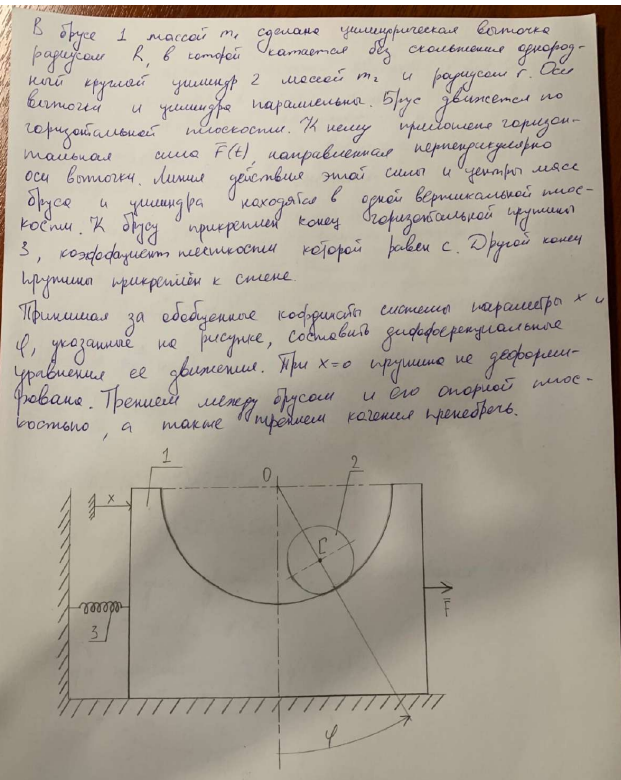 В брусе 1 массой m₁ сделана цилиндрическая выточка
радиусом R, в которой катается без скольжения однород-
ный круглый цилиндр 2 массой m₂ и радиусом r. Оси
выточки и цилиндра параллельны. Брус движется по
горизонтальной плоскости. К нему приложена горизон-
тальная сила F̅(t), направленная перпендикулярно
оси выточки. Линия действия этой силы и центры масс
бруса и цилиндра находятся в одной вертикальной плос-
кости. К брусу прикреплен конец горизонтальной пружины
3, коэффициент жесткости которой равен c. Другой конец
пружины прикреплён к стене.
Принимая за обобщенные координаты системы параметры x и
φ, указанные на рисунке, составить дифференциальные
уравнения ее движения. При x=0 пружина не деформи-
рована. Трением между брусом и его опорной плос-
костью, а также трением качения пренебречь.
1
O
2
x
C
F̅
3
φ